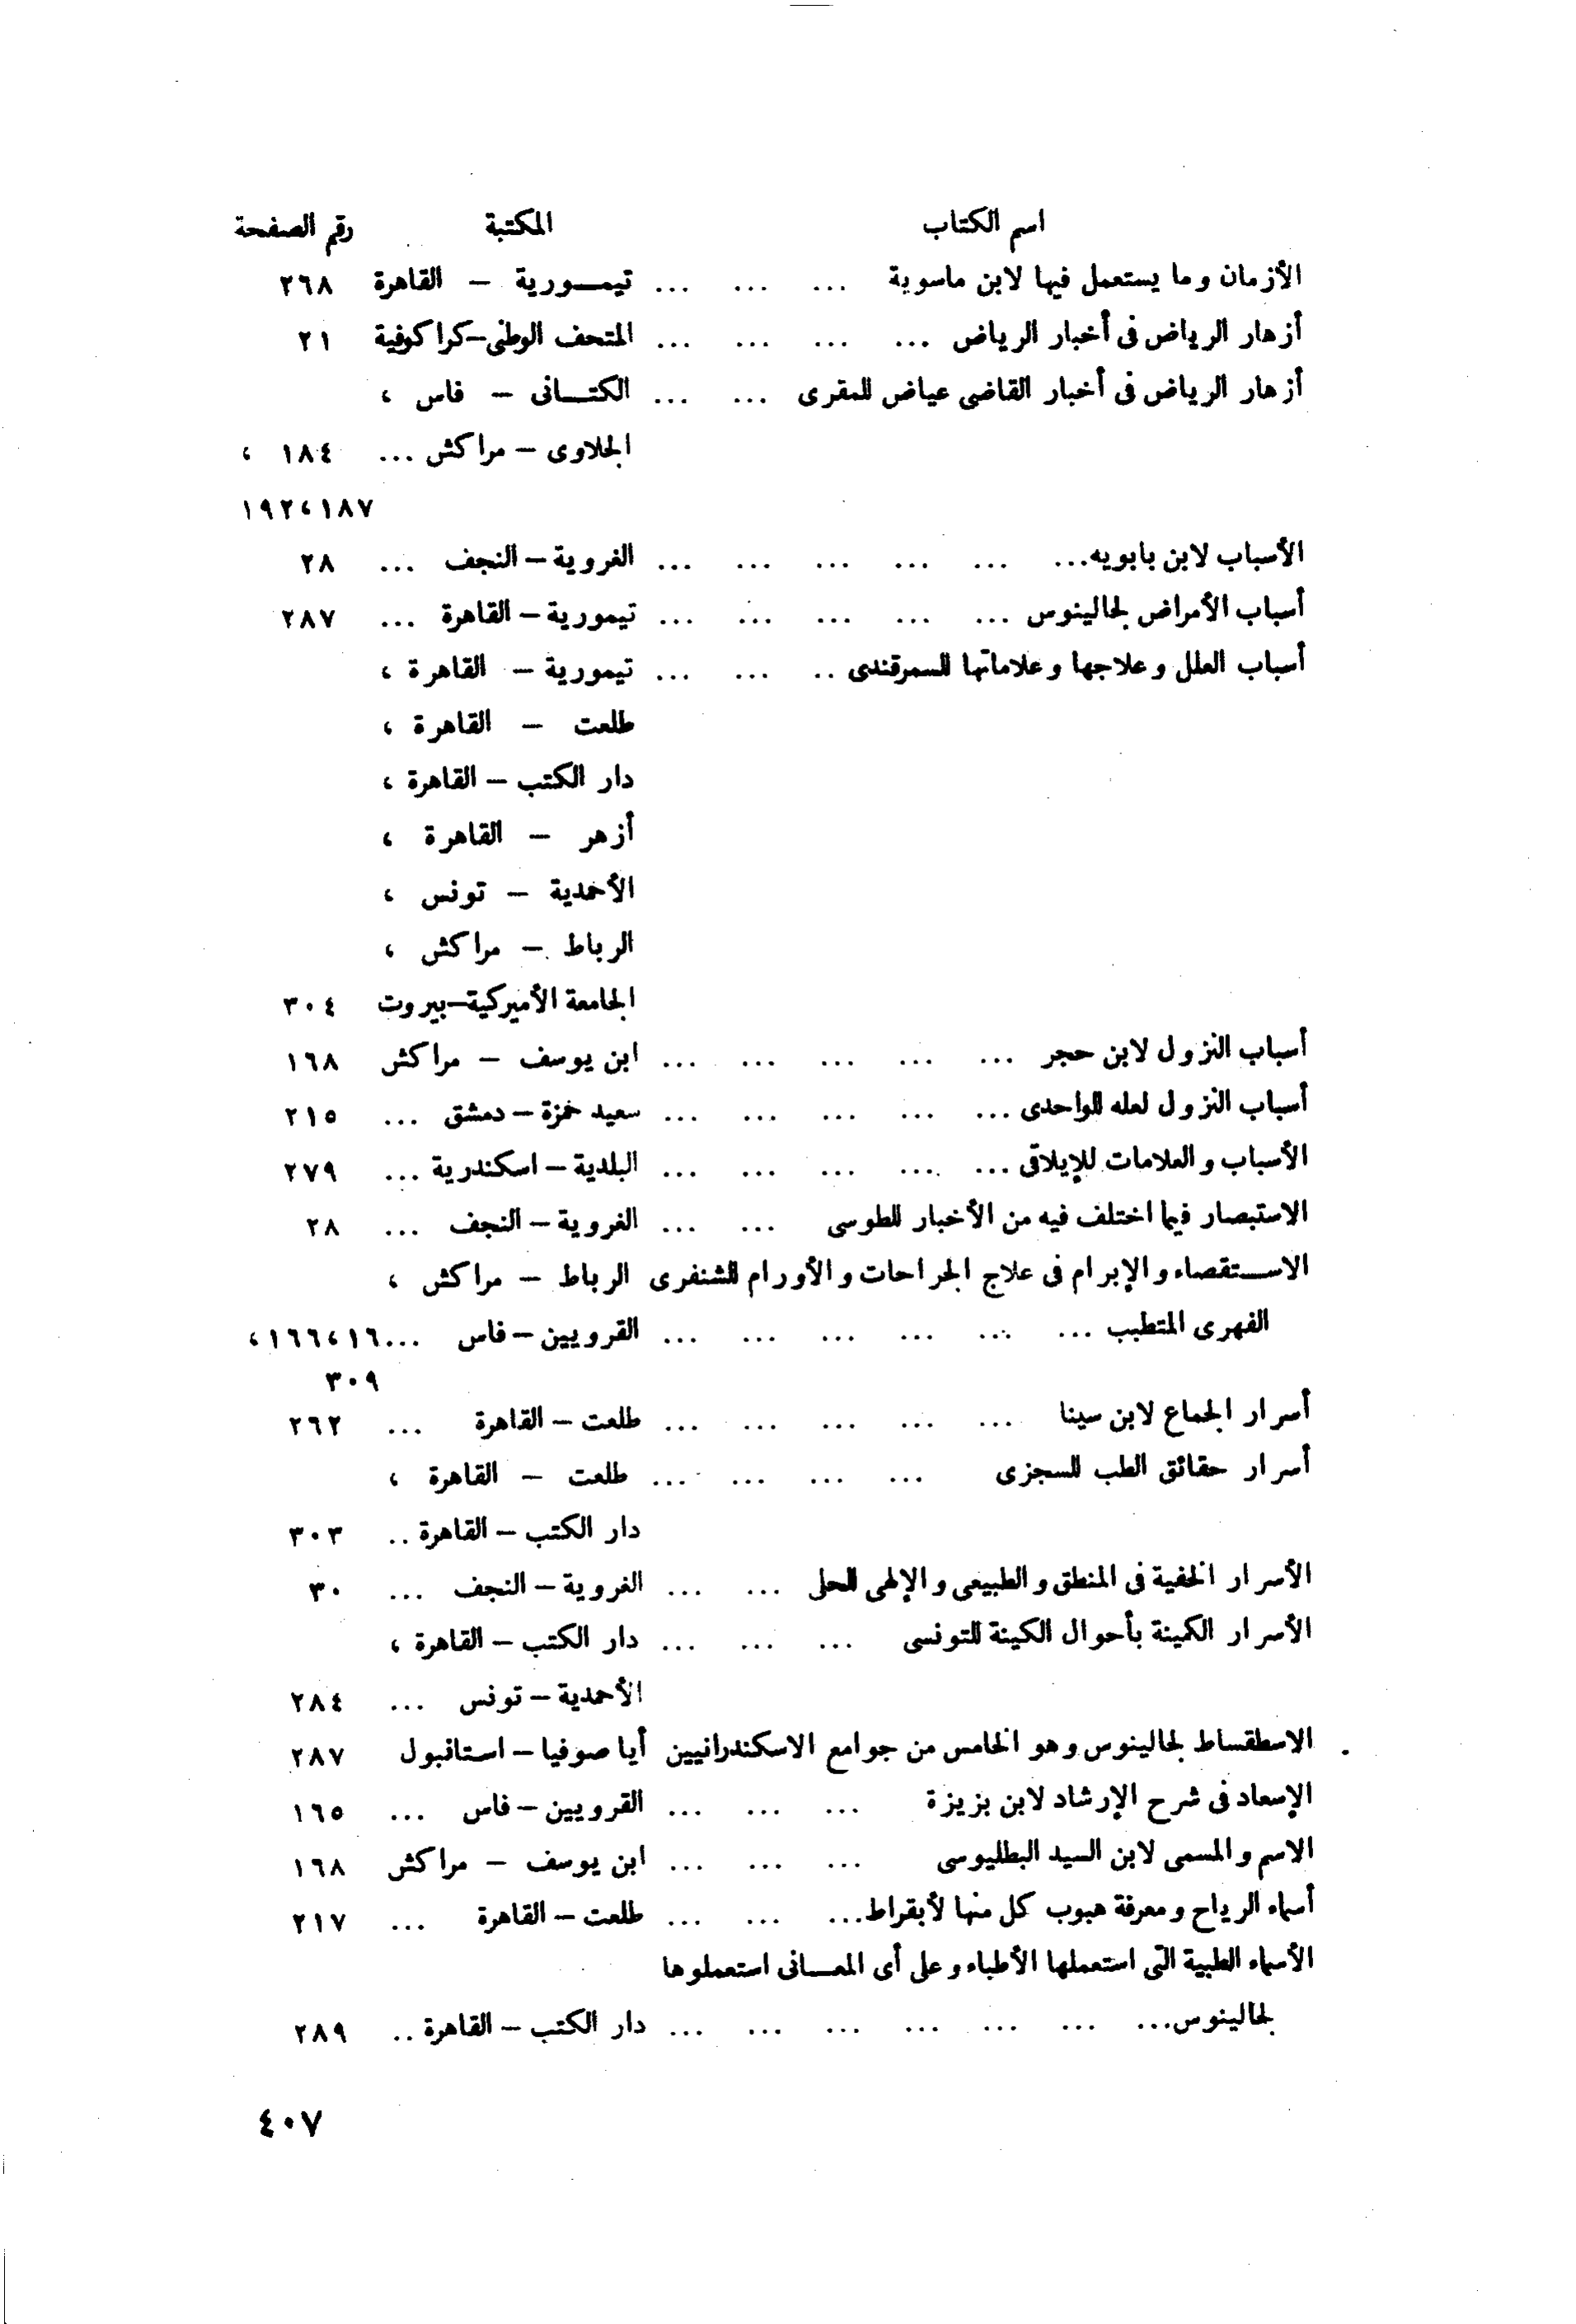 اسم الكتاب المكتبة رقم الصفحة
الأزمان وما يستعمل فيها لابن ماسوية ... ... ... تيمــورية – القاهرة ٢٦٨
أزهار الرياض فى أخبار الرياض ... ... ... ... المتحف الوطنى–كراكوفية ٢١
أزهار الرياض فى أخبار القاضى عياض للمقرى ... ... ... الكتــانى – فاس ،
الجلاوى – مراكش ... ١٨٤ ،
١٨٧ ، ١٩٢
الأسباب لابن بابويه... ... ... ... ... ... الغروية – النجف ... ٢٨
أسباب الأمراض لجالينوس ... ... ... ... ... تيمورية – القاهرة ... ٢٨٧
أسباب العلل وعلاجها وعلاماتها للسمرقندى .. ... ... تيمورية – القاهرة ،
طلعت – القاهرة ،
دار الكتب – القاهرة ،
أزهر – القاهرة ،
الأحمدية – تونس ،
الرباط – مراكش ،
الجامعة الأميركية–بيروت ٣٠٤
أسباب النزول لابن حجر ... ... ... ... ... ابن يوسف – مراكش ١٦٨
أسباب النزول لعله للواحدى ... ... ... ... ... سعيد حمزة – دمشق ... ٢١٥
الأسباب والعلامات للإيلاقى ... ... ... ... ... البلدية – اسكندرية ... ٢٧٩
الاستبصار فيما اختلف فيه من الأخبار للطوسى ... ... ... الغروية – النجف ... ٢٨
الاســتقصاء والإبرام فى علاج الجراحات والأورام للشنفرى الرباط – مراكش ،
الفهرى المتطبب ... ... ... ... ... ... القرويين – فاس ... ١٦ ، ١٦٦ ،
٣٠٩
أسرار الجماع لابن سينا ... ... ... ... ... طلعت – القاهرة ... ٢٦٢
أسرار حقائق الطب للسجزى ... ... ... ... طلعت – القاهرة ،
دار الكتب – القاهرة .. ٣٠٣
الأسرار الخفية فى المنطق والطبيعى والإلهى للحلى ... ... الغروية – النجف ... ٣٠
الأسرار الكمينة بأحوال الكينة للتونسى ... ... ... دار الكتب – القاهرة ،
الأحمدية – تونس ... ٢٨٤
الاسطقساط لجالينوس وهو الخامس من جوامع الاسكندرانيين أيا صوفيا – استانبول ٢٨٧
الإسعاد فى شرح الإرشاد لابن بزيزة ... ... ... القرويين – فاس ... ١٦٥
الاسم والمسمى لابن السيد البطليوسى ... ... ... ابن يوسف – مراكش ١٦٨
أسماء الرياح ومعرفة هبوب كل منها لأبقراط... ... ... طلعت – القاهرة ... ٢١٧
الأسماء الطبية التى استعملها الأطباء وعلى أى المعــانى استعملوها
لجالينوس... ... ... ... ... ... ... دار الكتب – القاهرة .. ٢٨٩
٤٠٧